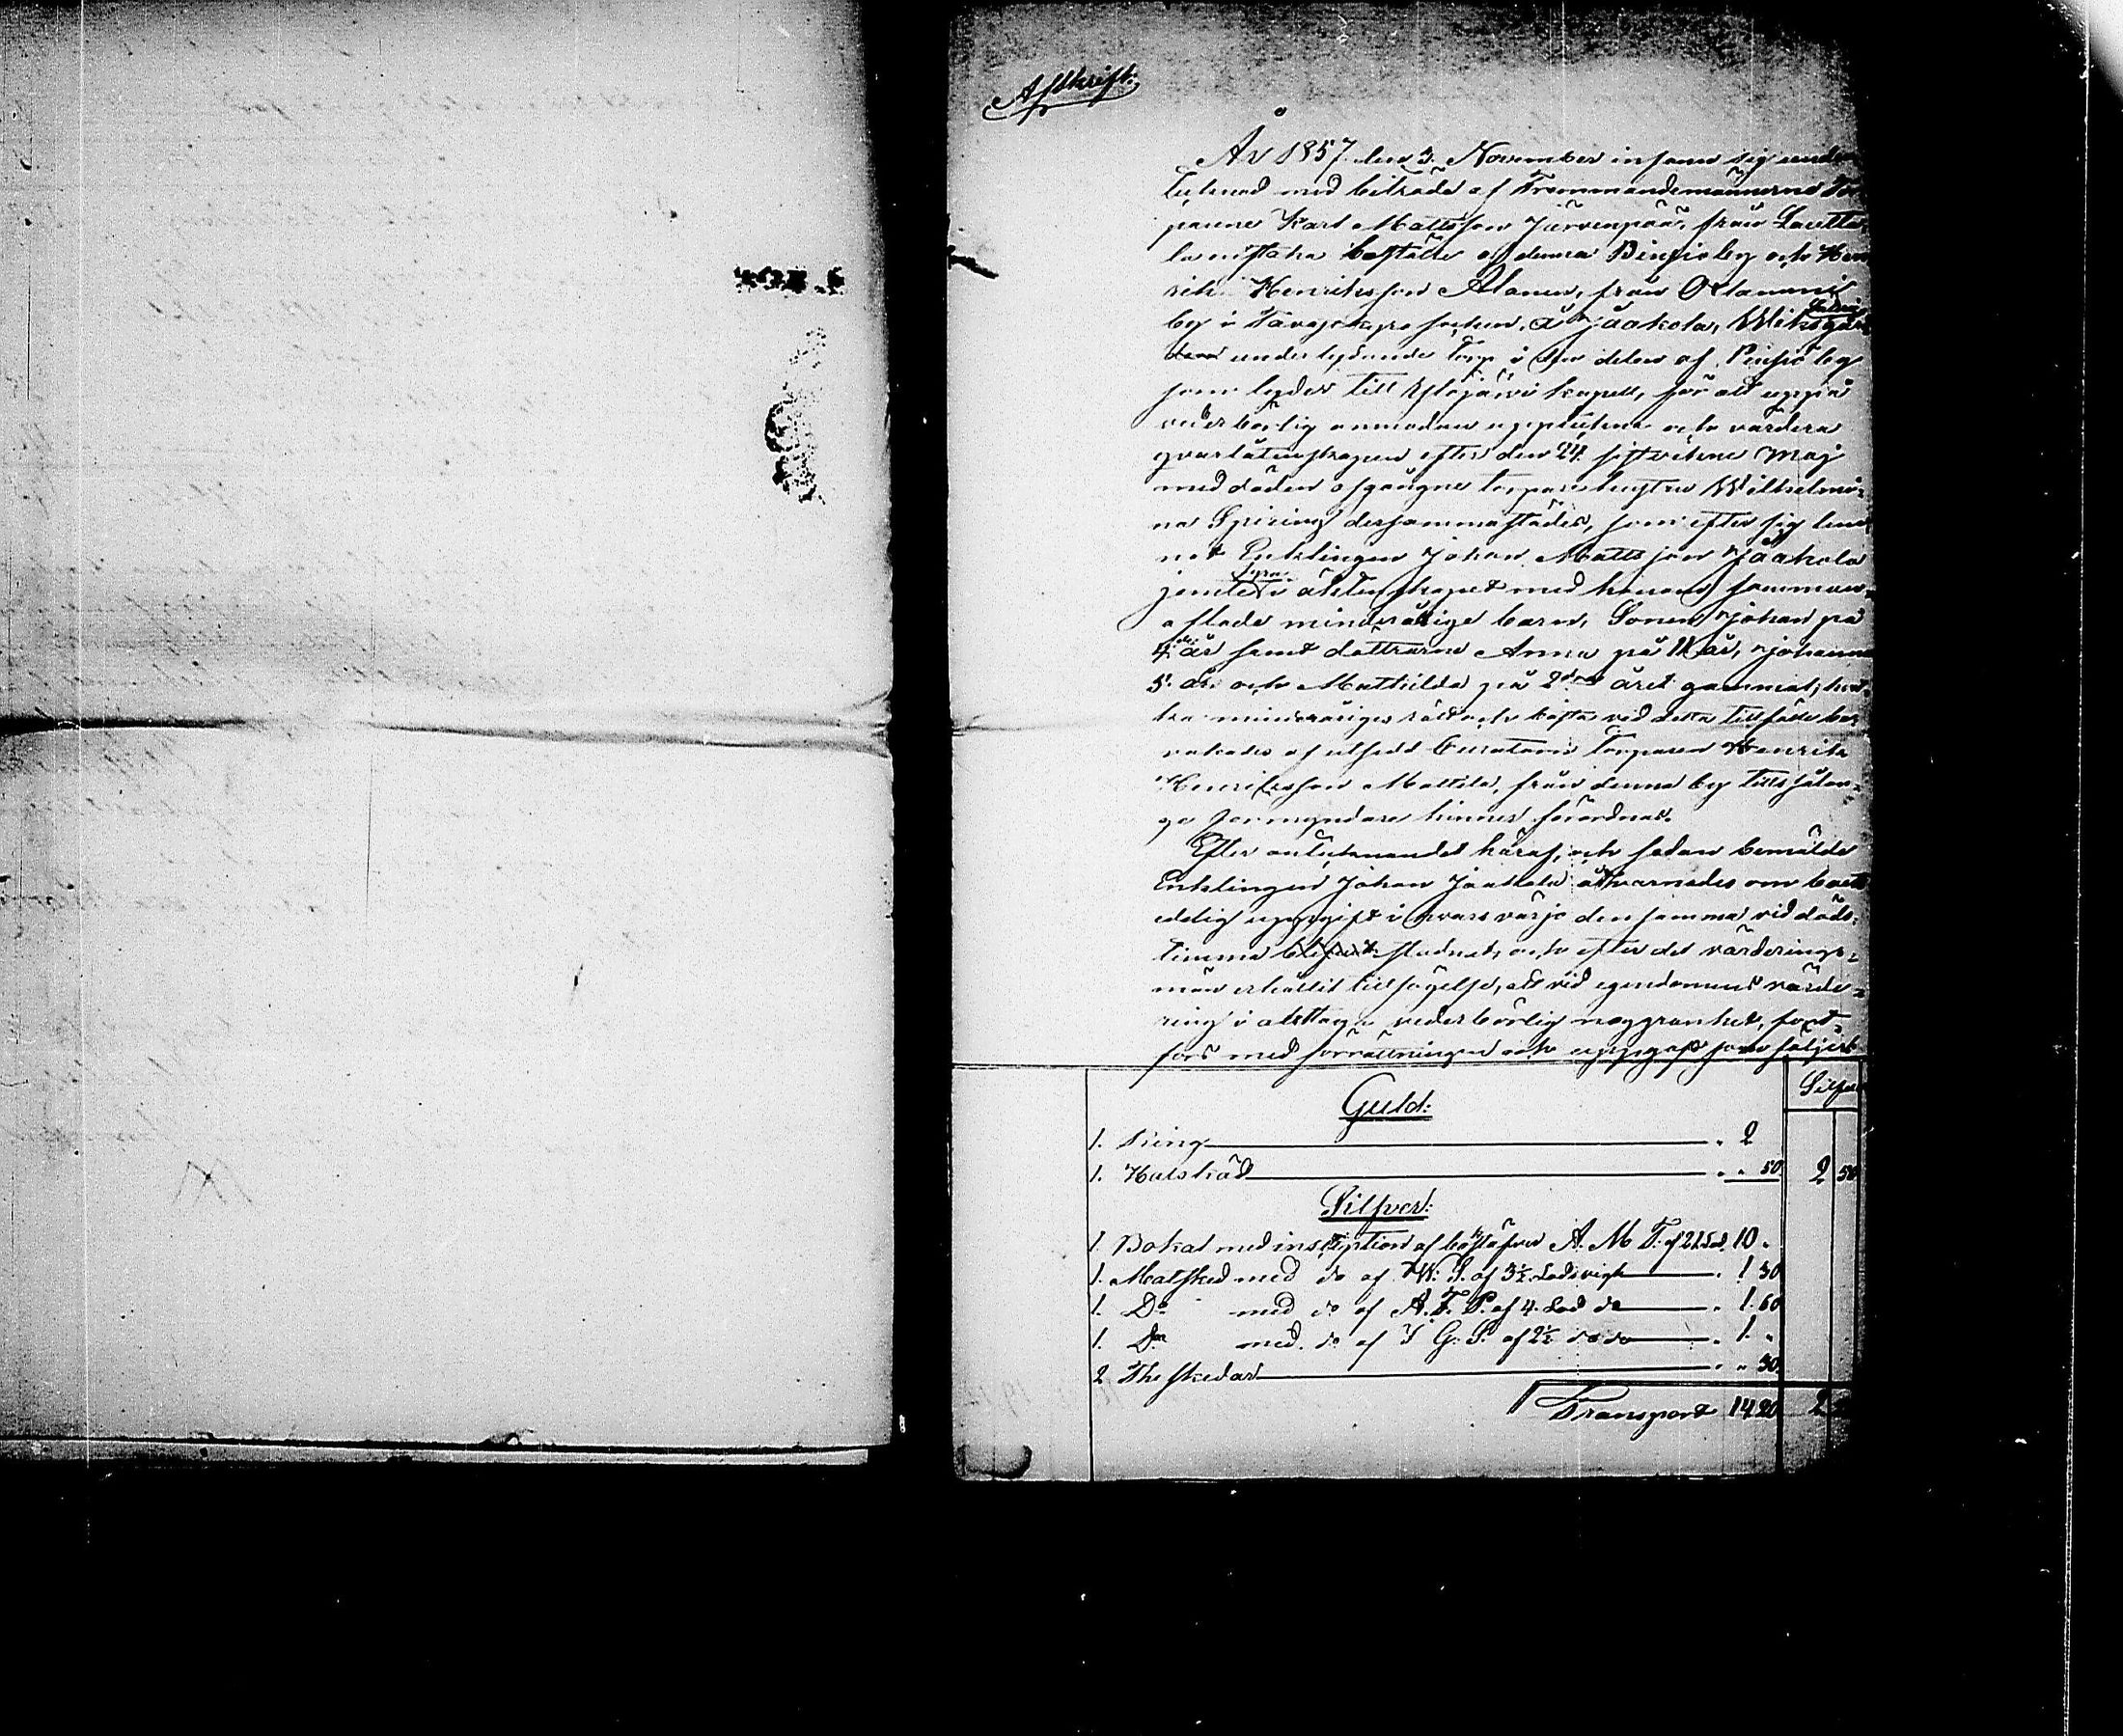 Afskrift.
År 1857 den 3. November infann sig under
tecknad med biträde af Tremmandemännerne Tor
parene Karl Mattsson Järvenpää, från Lautta
la nistaka boställe af denna Pinsiö by och Hen
rik Henriksson Alanen, från
by i Tavastkyro socken, å Jäakola,
underlydande torp i den delen af Pinsiö by
som lyder till Ylöjärvi kapell, för att uppå
vederbörlig anmodan uppteckna och värdera
qvarlåtenskapen efter den 24. sistvikne Maj
med döden afgångne torpare hustru Wilhelmi=
na Spiring dersammastädes, som efter sig lem
nat Enklingen Johan Mattsson Jäakola
jemte fyra i äktenskapet med honom samman=
aflade minderårige barn, Sonen Johan på
4.de år samt döttrarne Anna på 11 år, Johanna
5. år och Mathilda på 2dra året gammal; hvil
ka minderåriges rätt och bästa vid detta tillfälle be
vakades af utsedd Curatorn Torparen Henrik
Henriksson Mattila, från denna by tills sälun=
ge förmyndare hinner förordnas.
Efter antecknandet häraf, och sedan bemälde
Enklingen Johan Jäakola åtvarnades om boets
edelig uppgift i hvars värje densamma vid döds=
timma stadnat, och efter det värderings=
män erhållit tillsägelse, att vid egendomens värde=
ring i akttaga vederbörlig noggranhet, fort=
fors med förrättningen och uppgafs som följer:
Silfver
Guld:
1. Ring " 2
1. Halskäd " " 50 2 50
Silfver:
1. Bokal med inscription af bokstäfver A. M T. af 21 Lod. 10 "
1. Matsked med do af W. S. af 3½ Lods vigt " 1 30
1. Do med do af A. F. P. af 4. Lod do " 1. 60
1. Do med. do af I G. S. af 2½ do do " 1. "
2 Theskedar " " 30
Transport 14 20 2